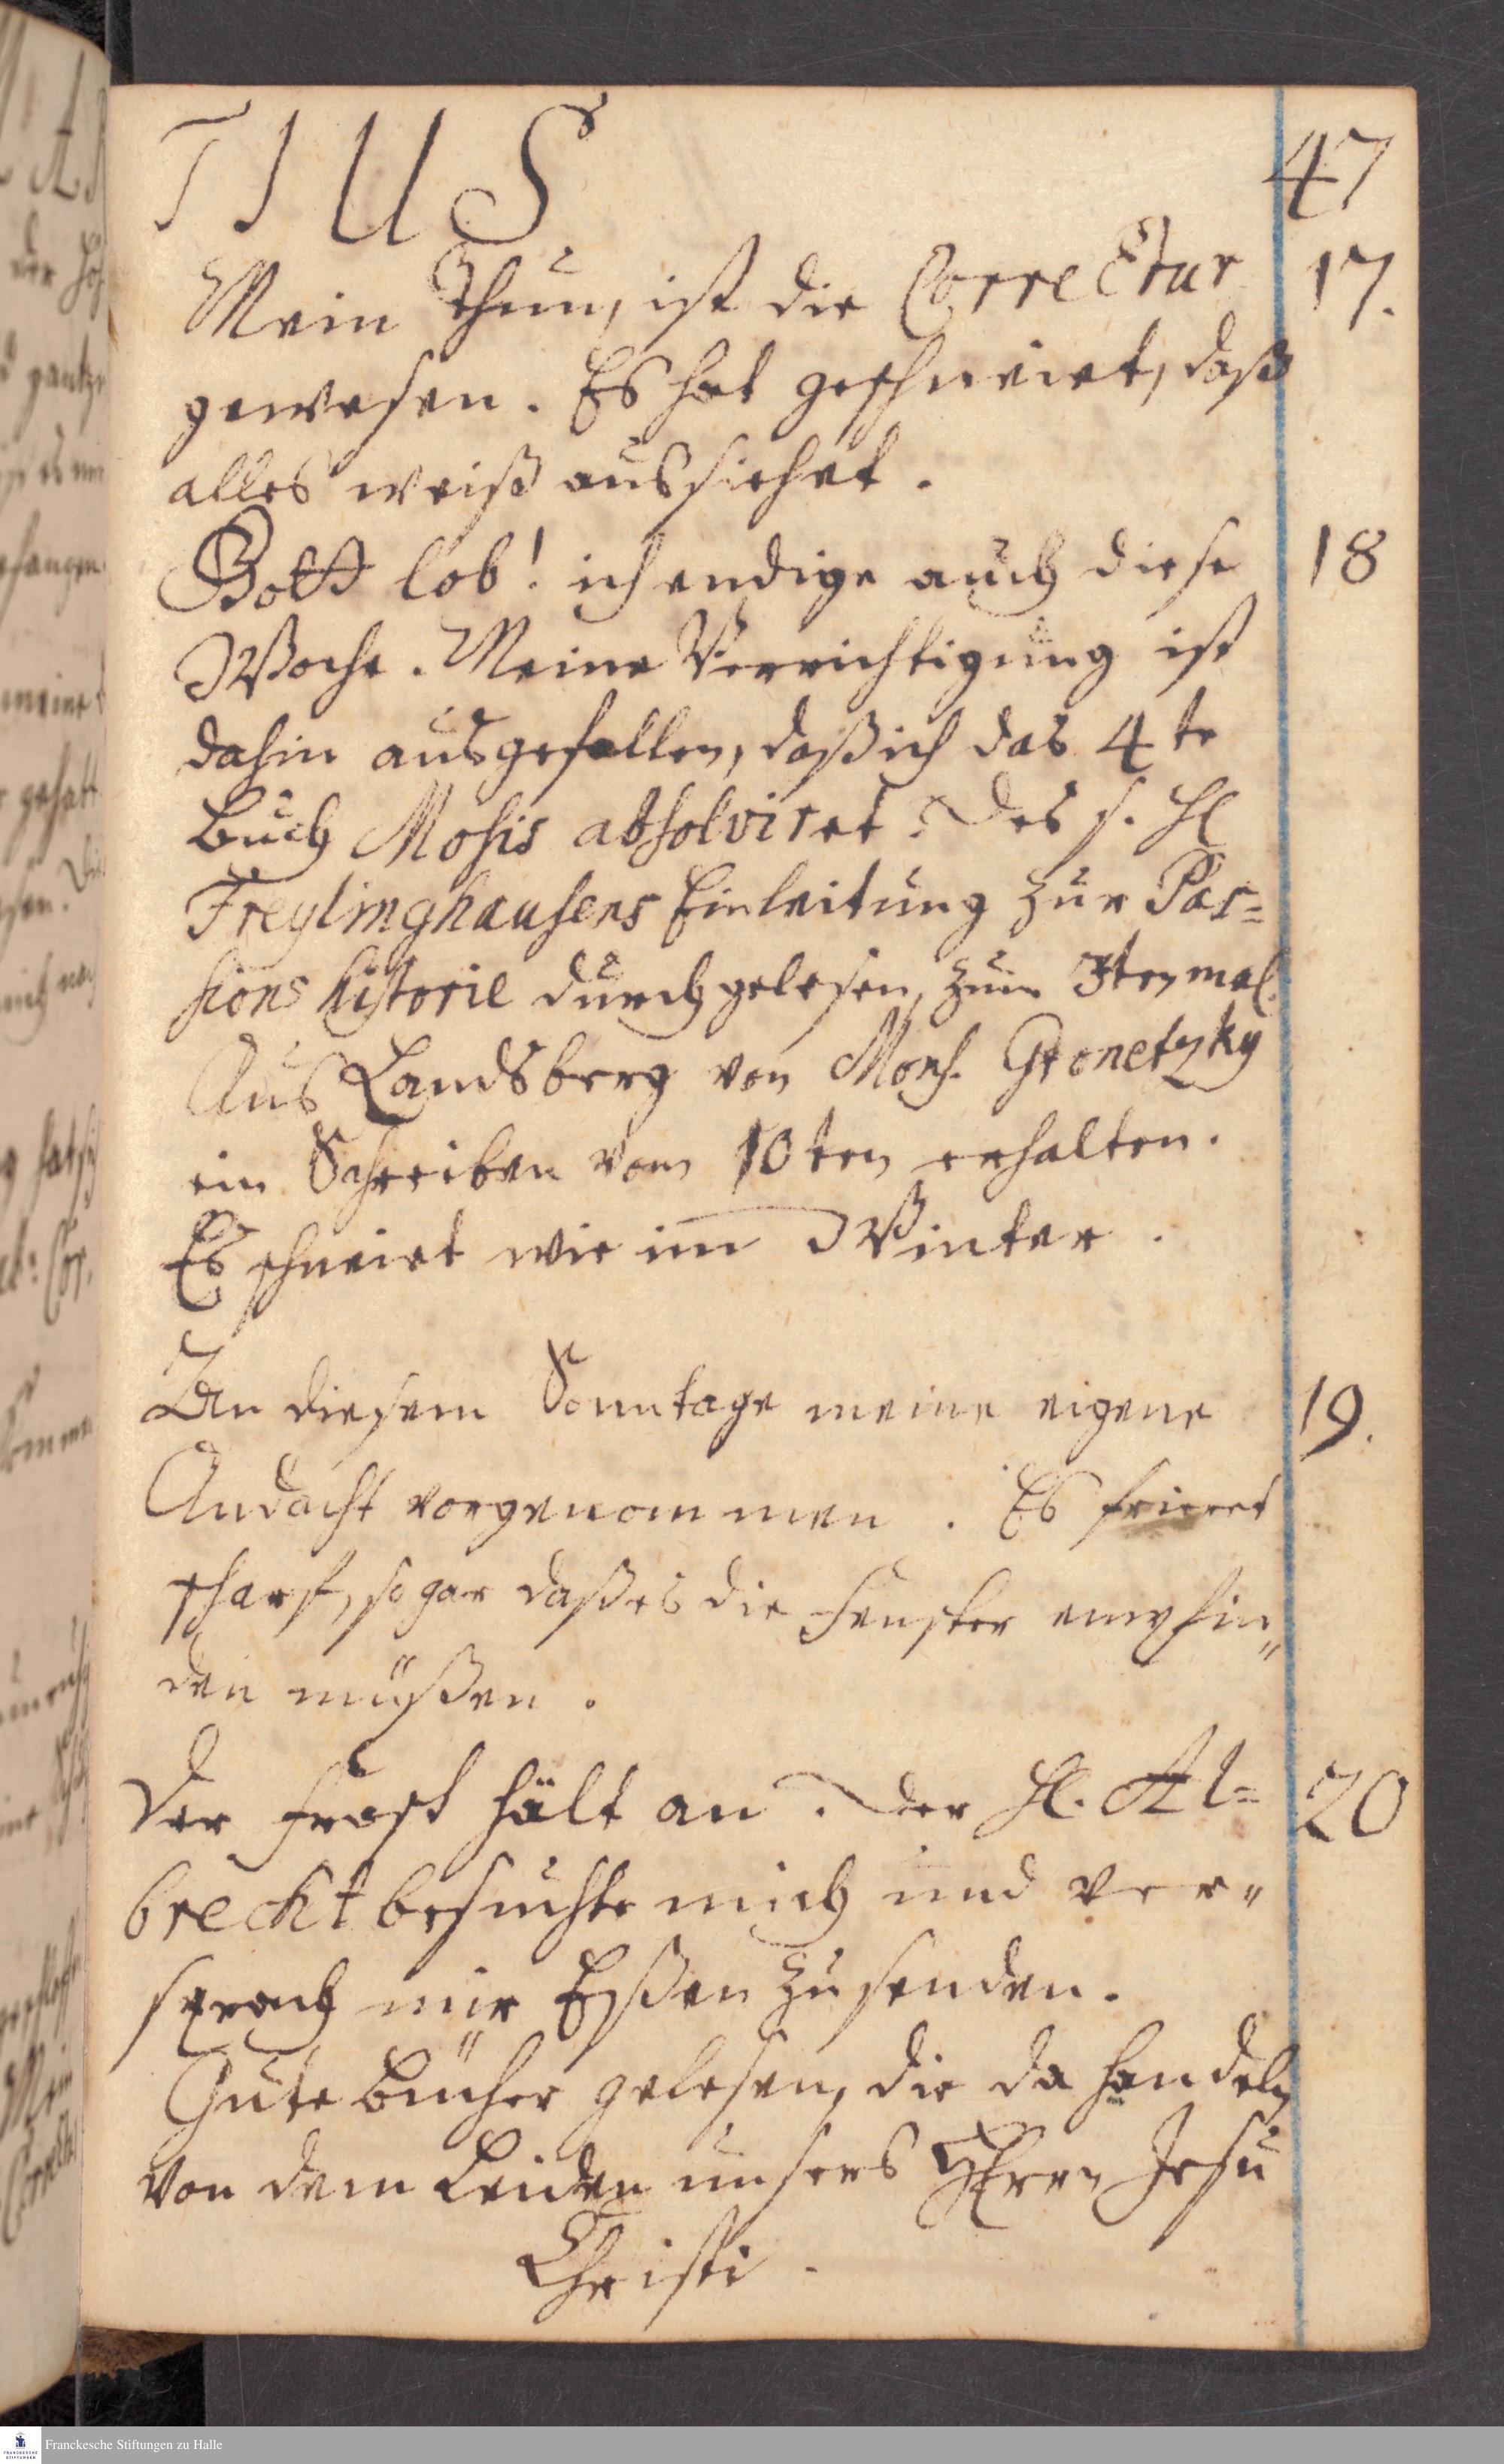 TIUS 47
Mein Thun, ist die Correctur 17.
gewesen. Es hat geschneiet, daß
alles weiß aussiehet.
Gott lob! ich endige auch diese 18
Woche. Meine Verrichtigung ist
dahin ausgefallen, daß ich das 4te
Buch Mosis absolviret. Des s. H
Freylinghausens Einleitung zur Pas=
sions historie durchgelesen, zum 3ten mal.
Aus Landsberg von Mons. Gronetzky
ein Schreiben vom 10ten erhalten.
Es schneiet wie im Winter.
An diesem Sonntage meine eigene 19.
Andacht vorgenommen. Es frieret
scharf, so gar daß es die Fenster empfin„
den müßen.
Der Frost hält an. Der H. Al= 20
brecht besuchte mich und ver„
sprach mir Eßen zu senden.
Gute Bücher gelesen, die da handeln
von dem Leiden unsers HErrn Jesu
Christi.
Franckesche Stiftungen zu Halle